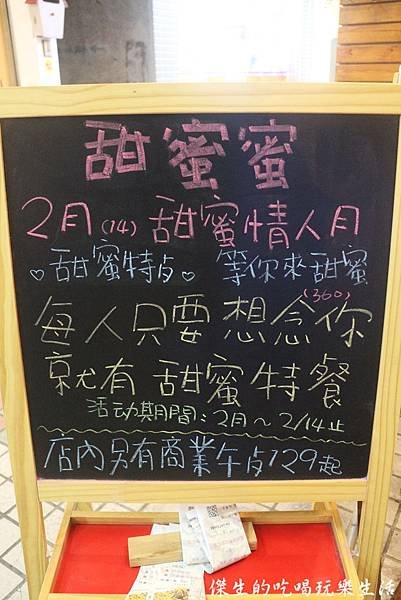 甜蜜蜜
2月(14) 甜蜜情人月
♡甜蜜特占♡ 等你來甜蜜
(360)
每人只要想念你
京尤有 甜蜜特餐
活动期間：2月～2/14止
店內另有商業午占129起
傑生的吃喝玩樂生活